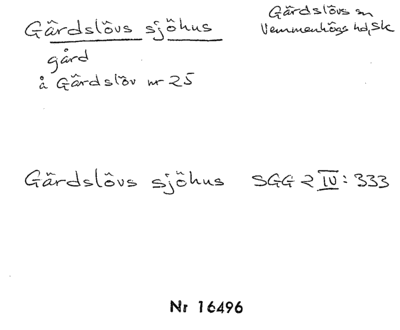 Gärdslövs sjöhus
Gärdslövs sn
Vemmenhögs hd, Sk
gård
å Gärdslöv nr 25
Gärdslövs sjöhus SGG 2 IV: 333
Nr 16496